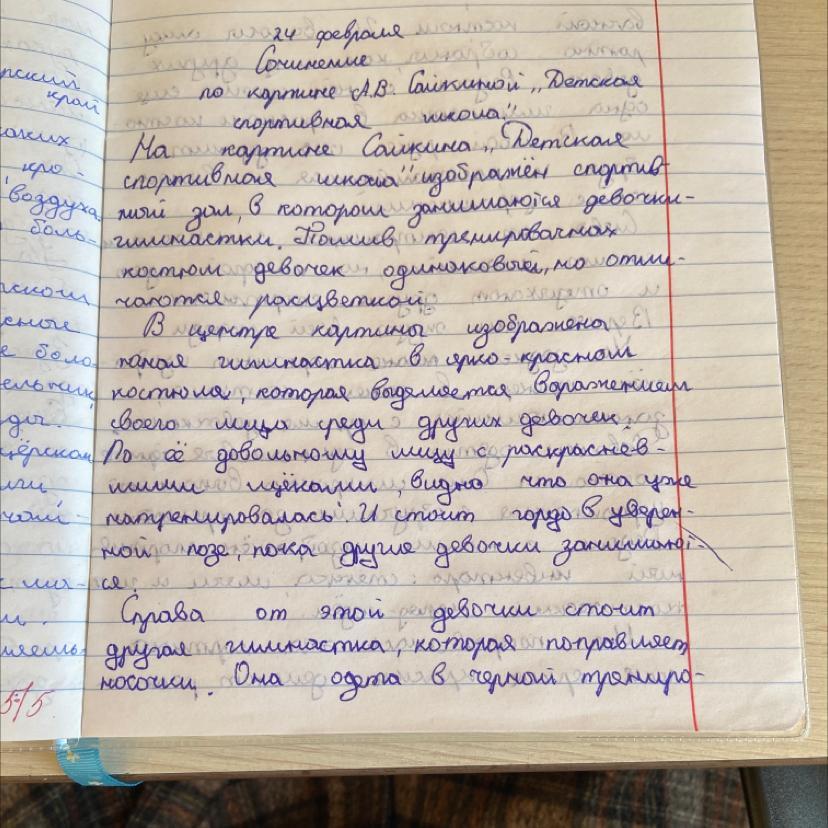 24 февраля
Сочинение
по картине А.В. Сайкиной „Детская
спортивная школа".
На картине Сайкина „Детская
спортивная школа" изображён спортив-
ный зал, в котором занимаются девочки-
гимнастки. Пошив тренировачнах
костюм девочек одинаковый, но отли-
чаются расцветкой
В центре картины изображена
юная гимнастка в ярко-красном
костюме, которая выделяется выражением
своего лица среди с других девочек.
По её довольному лицу с раскраснев-
шими щёками, видно что она уже
натренировалась. И стоит гордо в уверен-
ной позе, пока другие девочки занимают-
ся.
Справа от этой девочки стоит
другая гимнастка, которая поправляет
носочки. Она одета в черный трениро-
край
воздуха
боль-
5/5